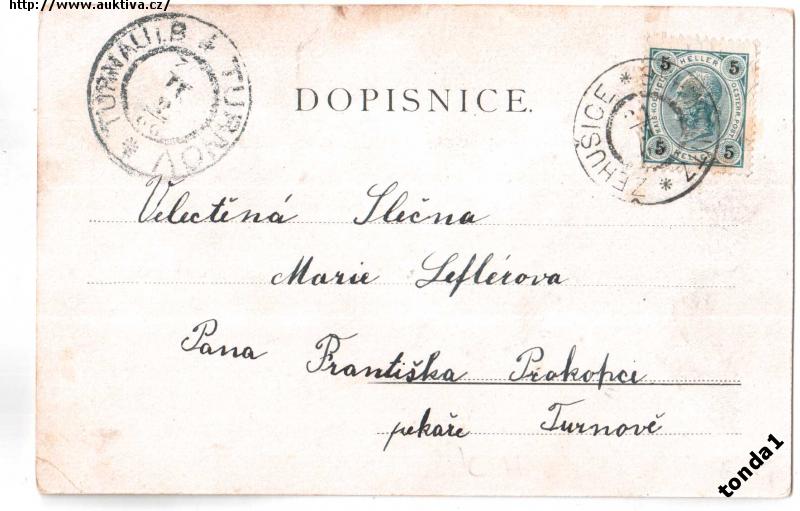 http://www.auktiva.cz/
TURNAU i.B. * TURNOV *
DOPISNICE.
ŽEHUŠICE *
5 HELLER 5
5 HELLER 5
Velectěná Slečna
Marie Leflérova
Pana Františka Prokopce
pekaře Turnově
tonda1